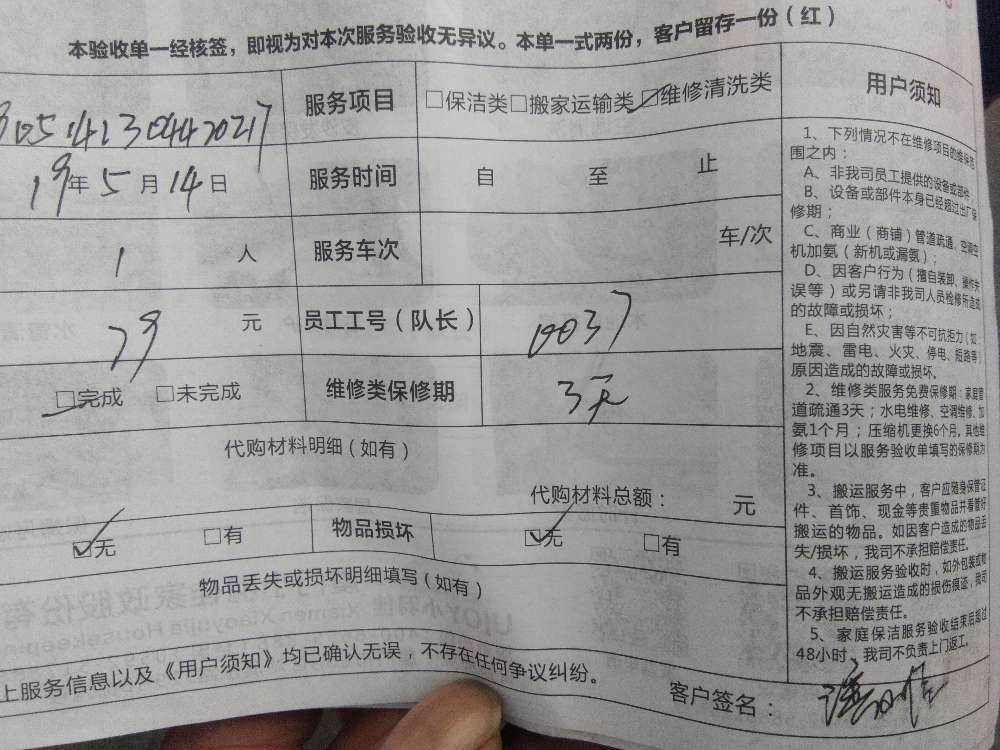 本验收单一经核签，即视为对本次服务验收无异议。本单一式两份，客户留存一份（红）
服务项目 □保洁类□搬家运输类☑维修清洗类
19年5月14日 服务时间 自 至 止
1 人 服务车次 车/次
79 元 员工工号（队长）
☑完成 □未完成 维修类保修期 3天
代购材料明细（如有）
代购材料总额： 元
☑无 □有 物品损坏 ☑无 □有
物品丢失或损坏明细填写（如有）
上服务信息以及《用户须知》均已确认无误，不存在任何争议纠纷。
客户签名：
用户须知
1、下列情况不在维修项目的维保范
围之内：
A、非我司员工提供的设备或部件；
B、设备或部件本身已经超过出厂保
修期；
C、商业（商铺）管道疏通、空调空
机加氨（新机或漏氨）；
D、因客户行为（擅自装卸、操作失
误等）或另请非我司人员检修所造成
的故障或损坏；
E、因自然灾害等不可抗拒力（如：
地震、雷电、火灾、停电、短路等）
原因造成的故障或损坏。
2、维修类服务免费保修期：家庭管
道疏通3天；水电维修、空调维修、加
氨1个月；压缩机更换6个月，其他维
修项目以服务验收单填写的保修期为
准。
3、搬运服务中，客户应随身保管证
件、首饰、现金等贵重物品并看管好
搬运的物品。如因客户造成的物品丢
失/损坏，我司不承担赔偿责任。
4、搬运服务验收时，如外包装或物
品外观无搬运造成的损伤痕迹，我司
不承担赔偿责任。
5、家庭保洁服务验收结束后超过
48小时，我司不负责上门返工。